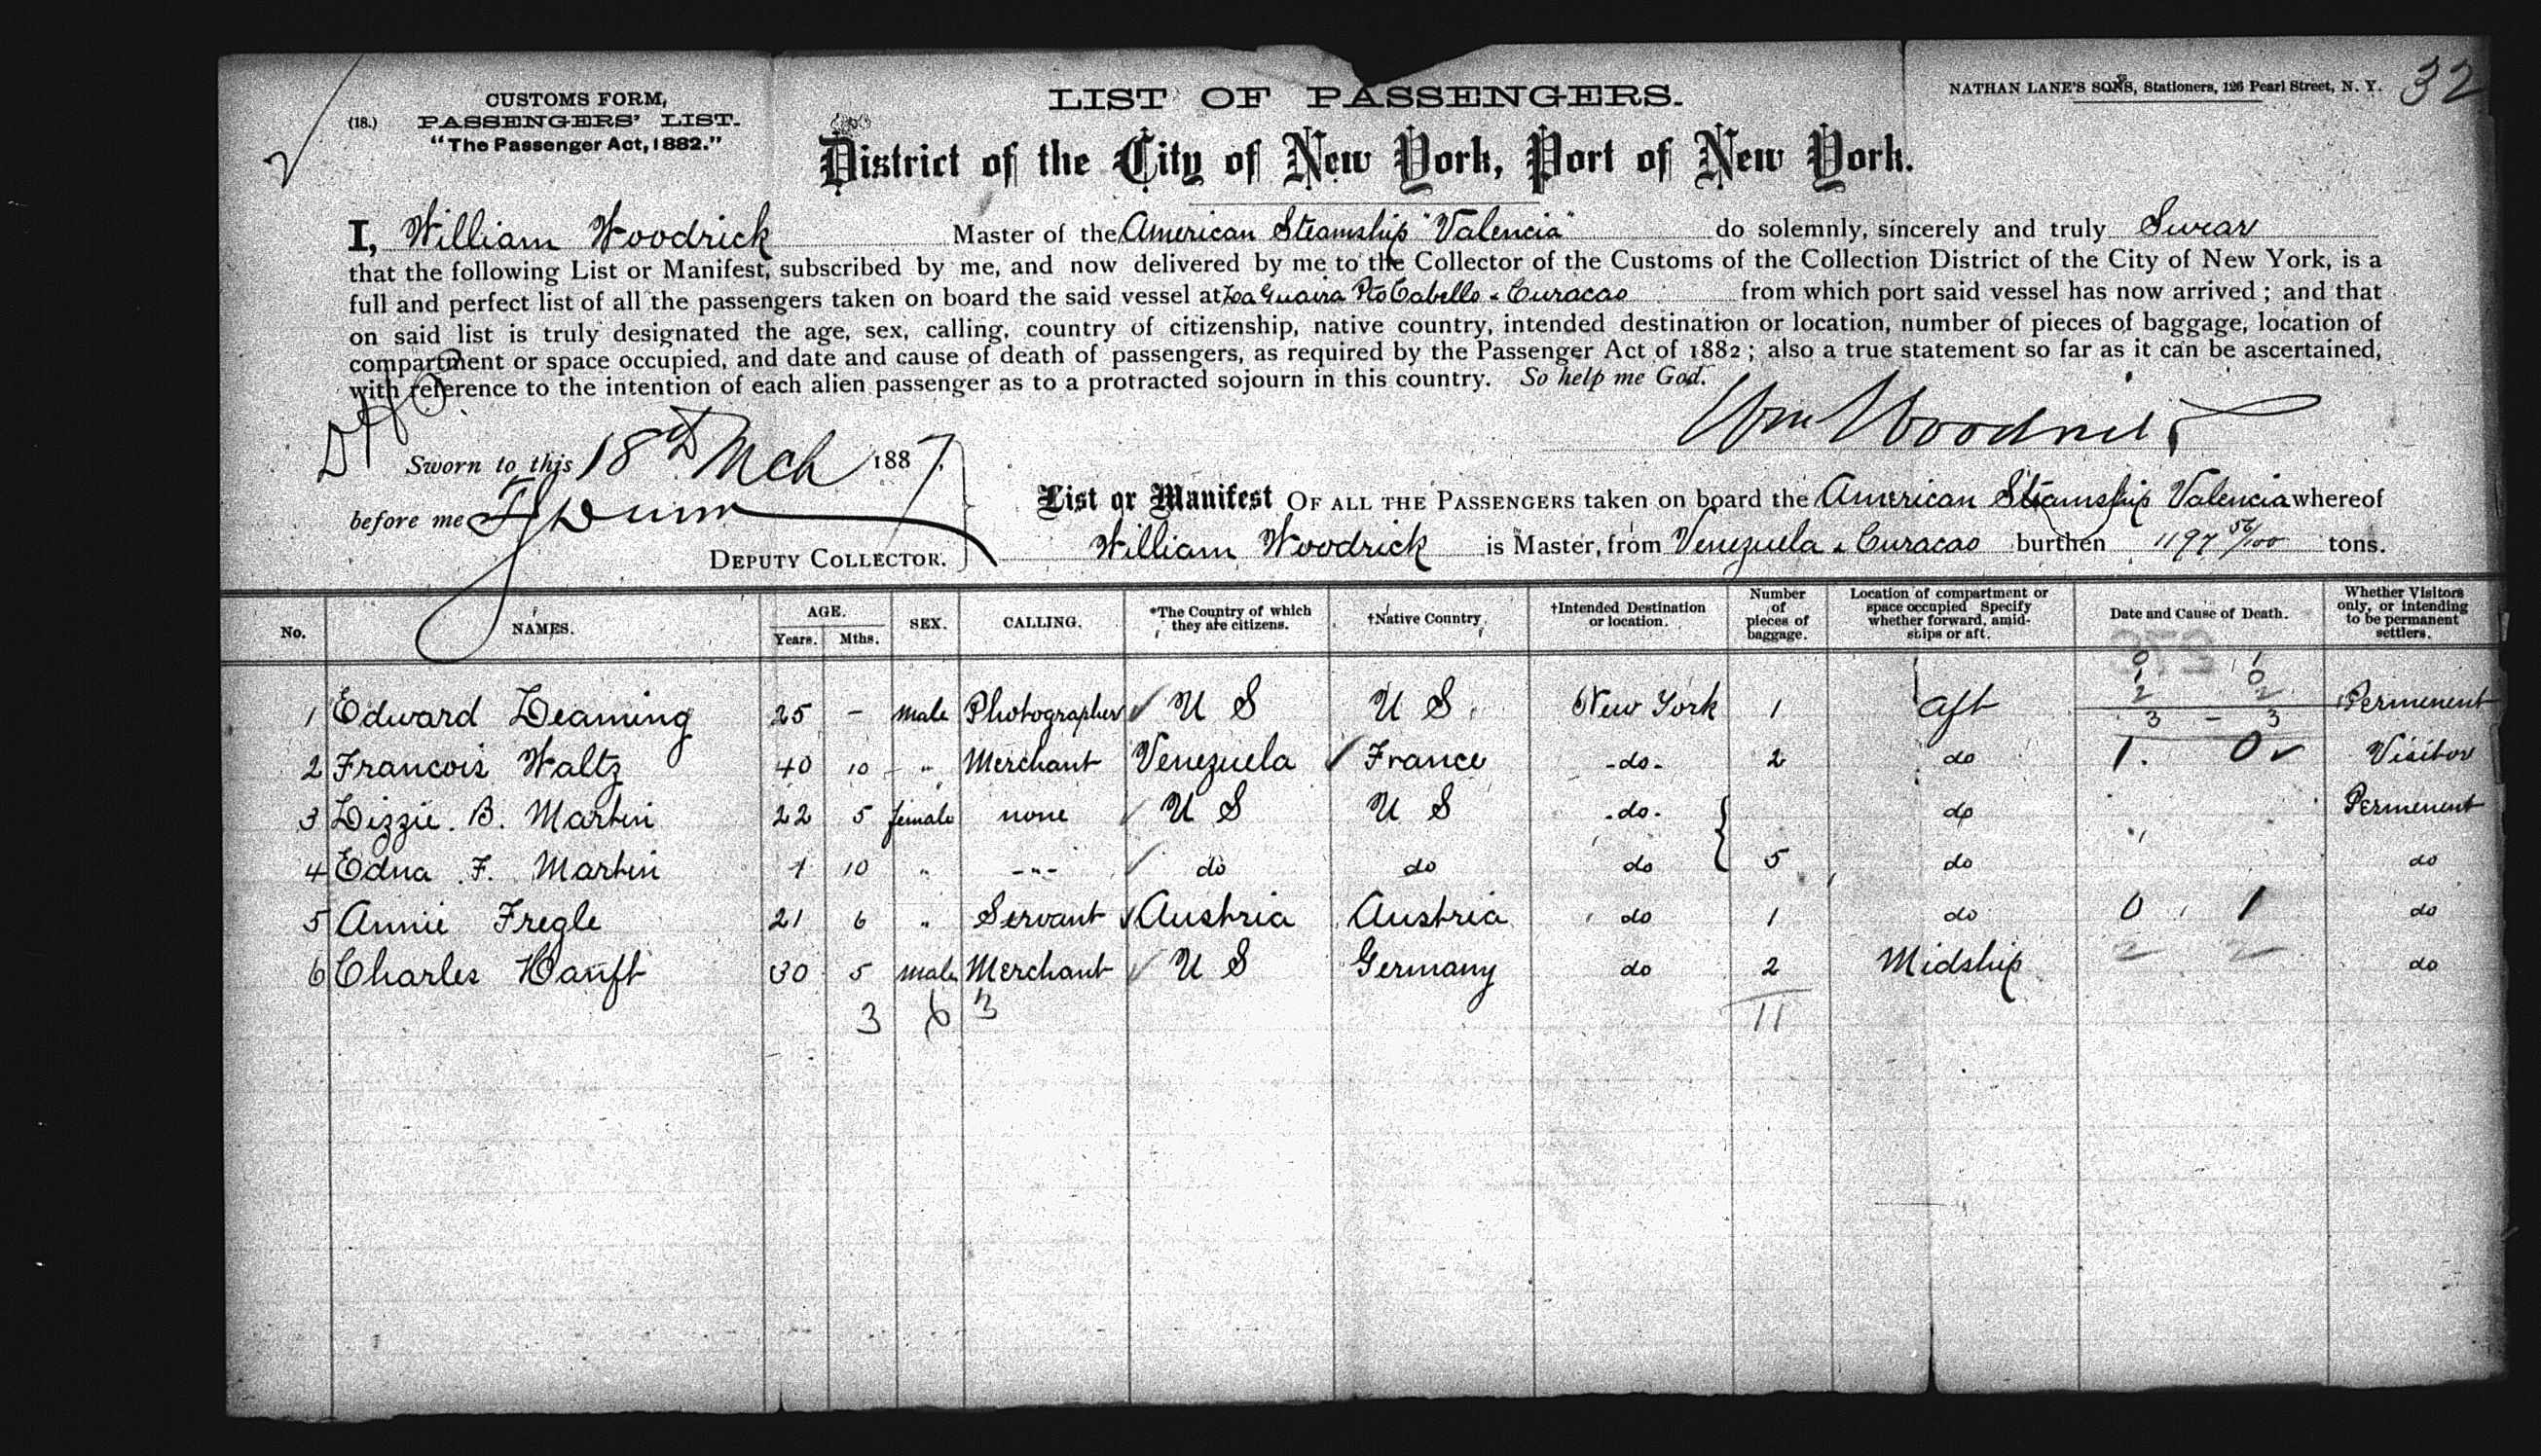 CUSTOMS FORM,
(18.) PASSENGERS' LIST.
"The Passenger Act, 1882."
LIST OF PASSENGERS.
NATHAN LANE'S SONS, Stationers, 126 Pearl Street, N. Y.
32
District of the City of New York, Port of New York.
I, William Woodrick Master of the American Steamship "Valencia" do solemnly, sincerely and truly Swear
that the following List or Manifest, subscribed by me, and now delivered by me to the Collector of the Customs of the Collection District of the City of New York, is a
full and perfect list of all the passengers taken on board the said vessel at La Guaira Pto Cabello & Curacao from which port said vessel has now arrived; and that
on said list is truly designated the age, sex, calling, country of citizenship, native country, intended destination or location, number of pieces of baggage, location of
compartment or space occupied, and date and cause of death of passengers, as required by the Passenger Act of 1882; also a true statement so far as it can be ascertained,
with reference to the intention of each alien passenger as to a protracted sojourn in this country. So help me God.
Wm Woodrick
Sworn to this 18th Mch 1887.
before me
DEPUTY COLLECTOR.
List or Manifest OF ALL THE PASSENGERS taken on board the American Steamship Valencia whereof
William Woodrick is Master, from Venezuela & Curacao burthen 1197 56/100 tons.
No. NAMES. AGE. Years. Mths. SEX. CALLING. *The Country of which they are citizens. †Native Country. †Intended Destination or location. Number of pieces of baggage. Location of compartment or space occupied Specify whether forward, amidships or aft. Date and Cause of Death. Whether Visitors only, or intending to be permanent settlers.
0 1
1 0
2 2
1 Edward Leaming 25 - male Photographer U S U S New York 1 aft 3 - 3 Permenent
2 Francois Waltz 40 10 " Merchant Venezuela France -do- 2 do 1. 0 Visitor
3 Lizzie B. Martin 22 5 female none U S U S -do- do Permenent
4 Edna F. Martin 1 10 " -"- do do do 5 do do
5 Annie Fregle 21 6 " Servant Austria Austria do 1 do 0 1 do
6 Charles Hanft 30 5 male Merchant U S Germany do 2 Midship 2 2 do
3 6 3 11